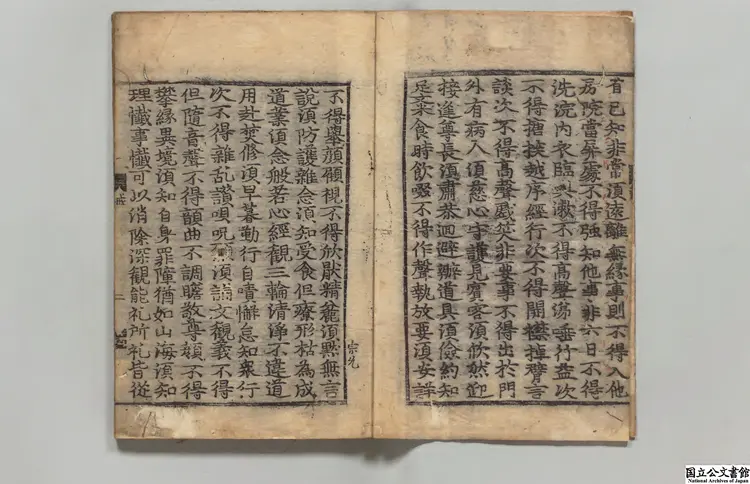 省已知非常須遠離無緣事則不得入他
房院當屏處不得強知他事非六日不得
洗浣内衣臨盥漱不得高聲涕唾行益次
不得搪揬越序經行次不得開襟掉臂言
談次不得高聲戱笑非要事不得出於門
外有病人須慈心守護見賓客須欣然迎
接逢尊長須肅恭迴避辦道具須儉約知
足齋食時飮啜不得作聲執放要須安詳
不得擧顔顧視不得欣猒精麁須默無言
說須防護雜念須知受食但療形枯為成
道業須念般若心經觀三輪清淨不違道
用赴焚修須早暮勤行自責懈怠知衆行
次不得雜乱讃唄呪願須誦文觀義不得
但隨音聲不得韻曲不調瞻敬尊顔不得
攀緣異境須知自身罪障猶如山海須知
理懺事懺可以消除深觀能礼所礼皆從
宗允
国立公文書館
National Archives of Japan